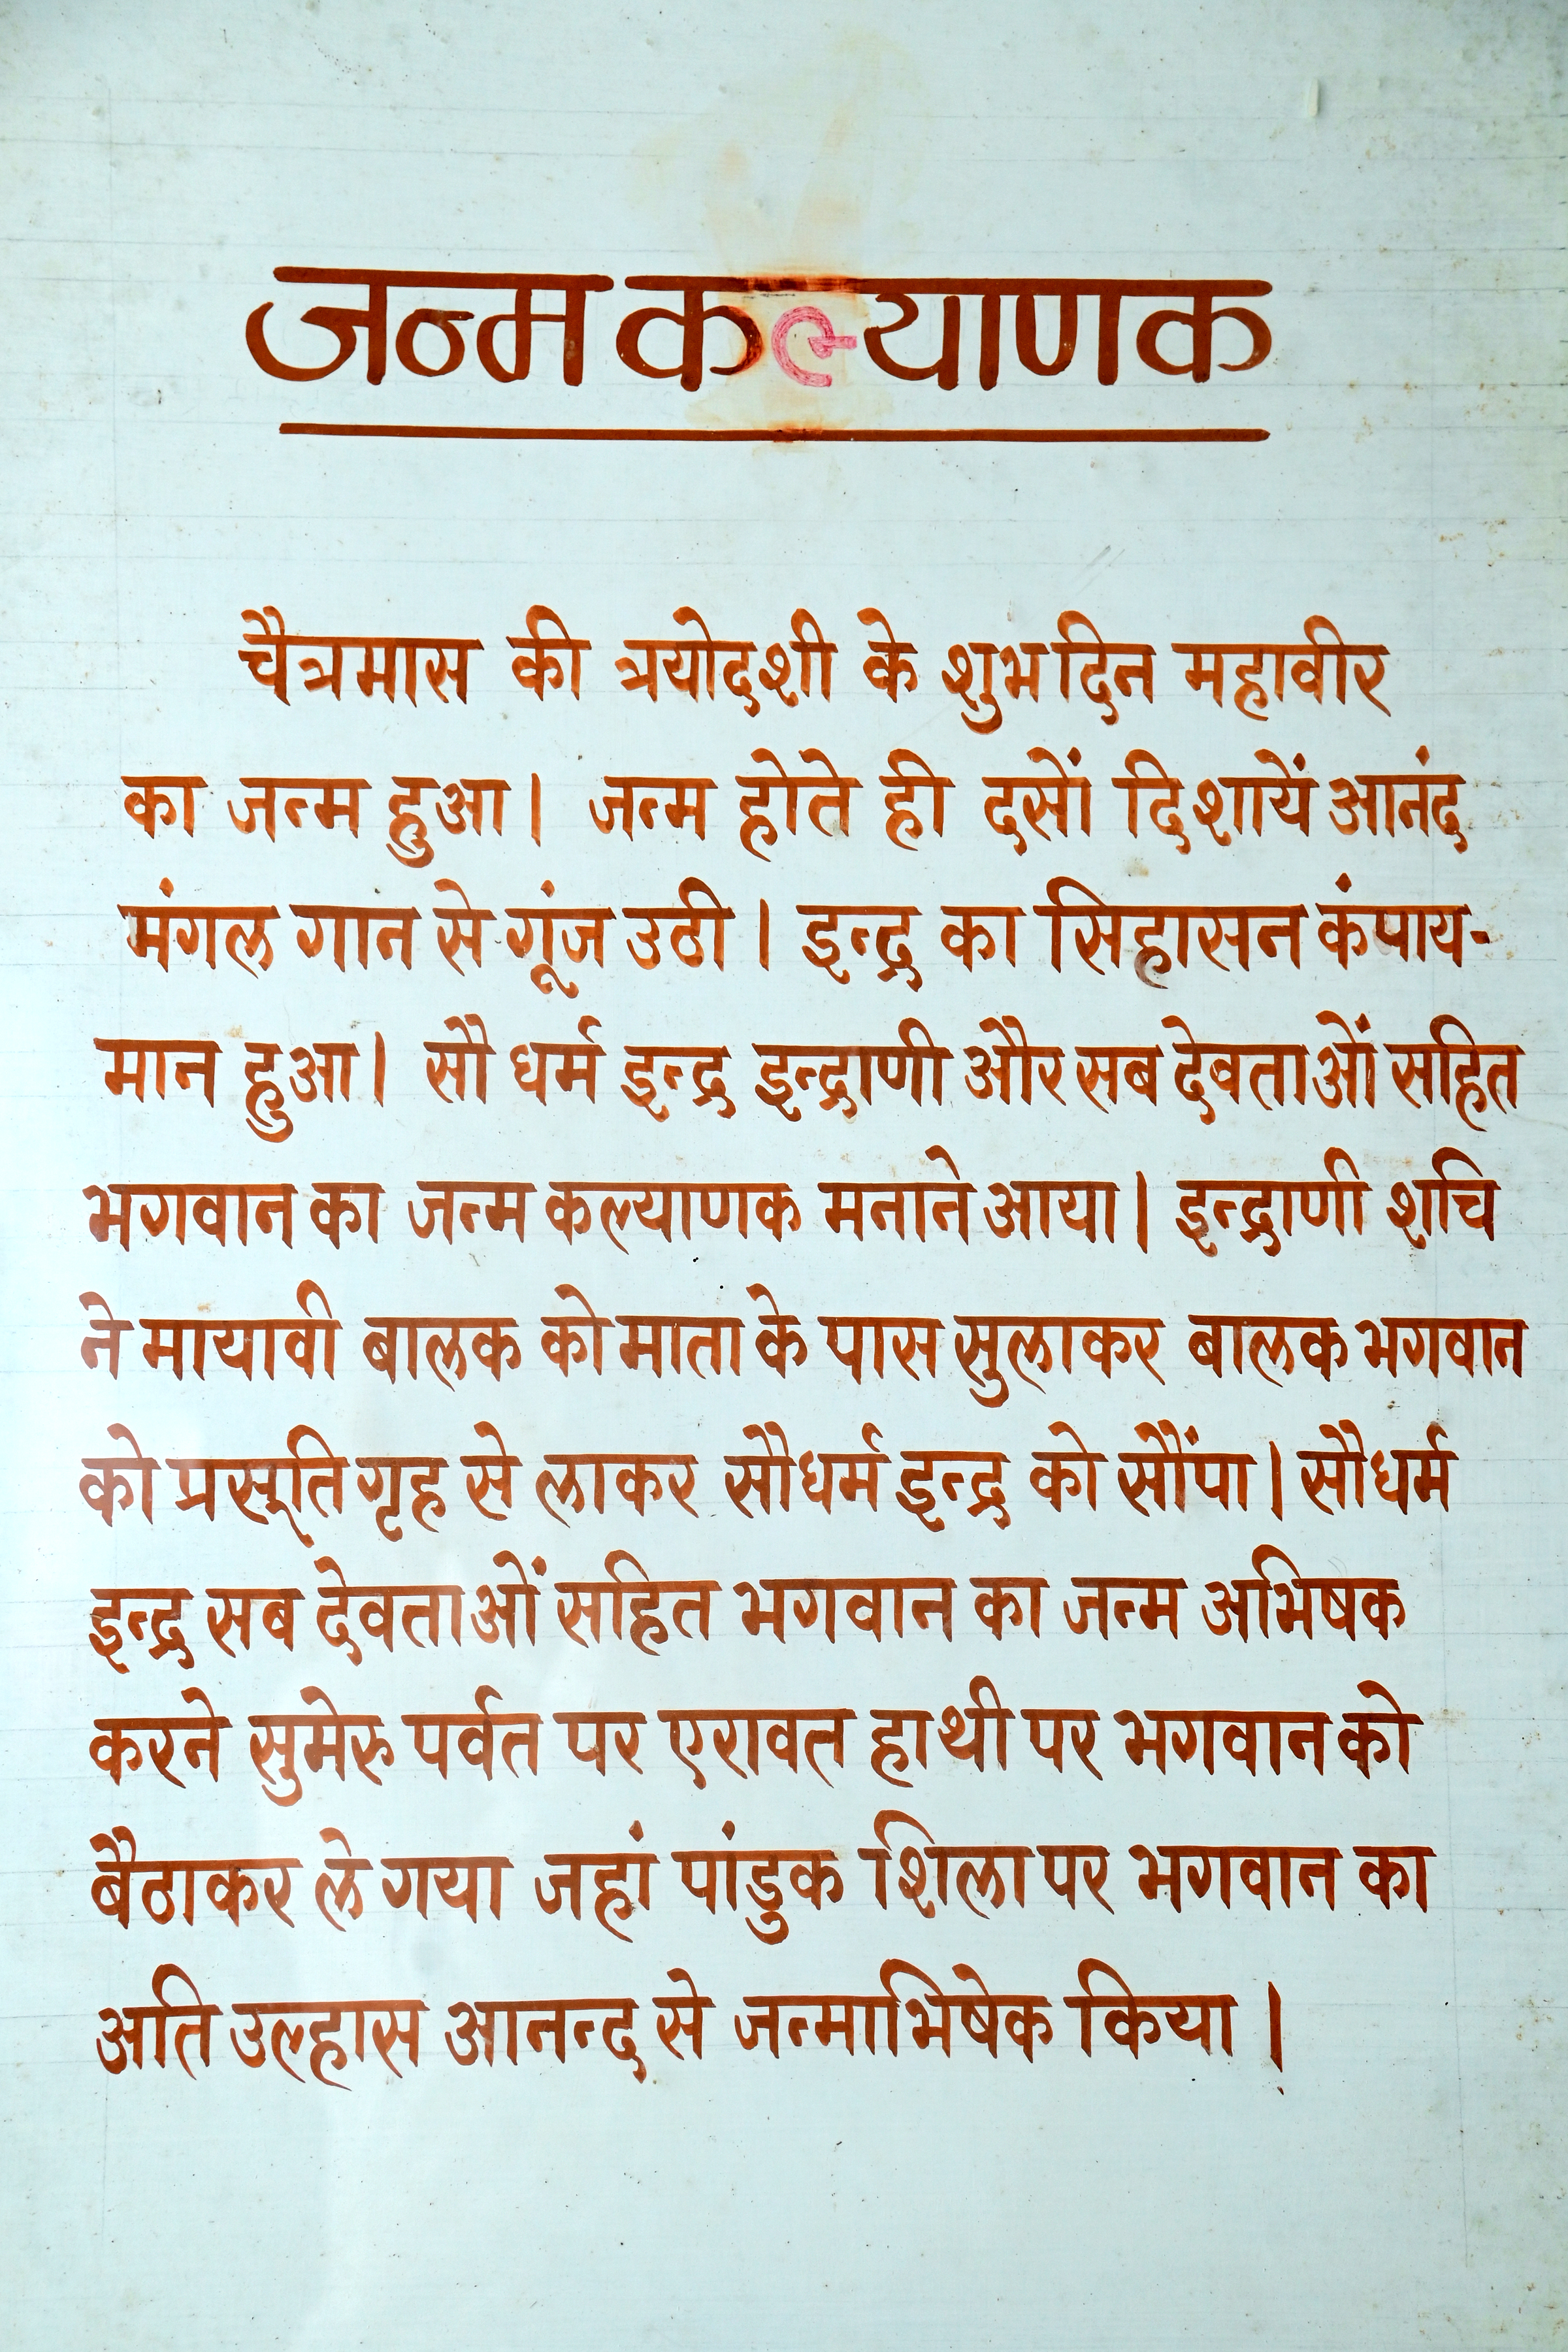 जन्म कल्याणक
चैत्रमास की त्रयोदशी के शुभ दिन महावीर
का जन्म हुआ। जन्म होते ही दसों दिशायें आनंद
मंगल गान से गूंज उठी। इन्द्र का सिहासन कंपाय-
मान हुआ। सौ धर्म इन्द्र इन्द्राणी और सब देवताओं सहित
भगवान का जन्म कल्याणक मनाने आया। इन्द्राणी शचि
ने मायावी बालक को माता के पास सुलाकर बालक भगवान
को प्रसूति गृह से लाकर सौधर्म इन्द्र को सौंपा। सौधर्म
इन्द्र सब देवताओं सहित भगवान का जन्म अभिषक
करने सुमेरु पर्वत पर एरावत हाथी पर भगवान को
बैठाकर ले गया जहां पांडुक शिला पर भगवान का
अति उल्हास आनन्द से जन्माभिषेक किया।